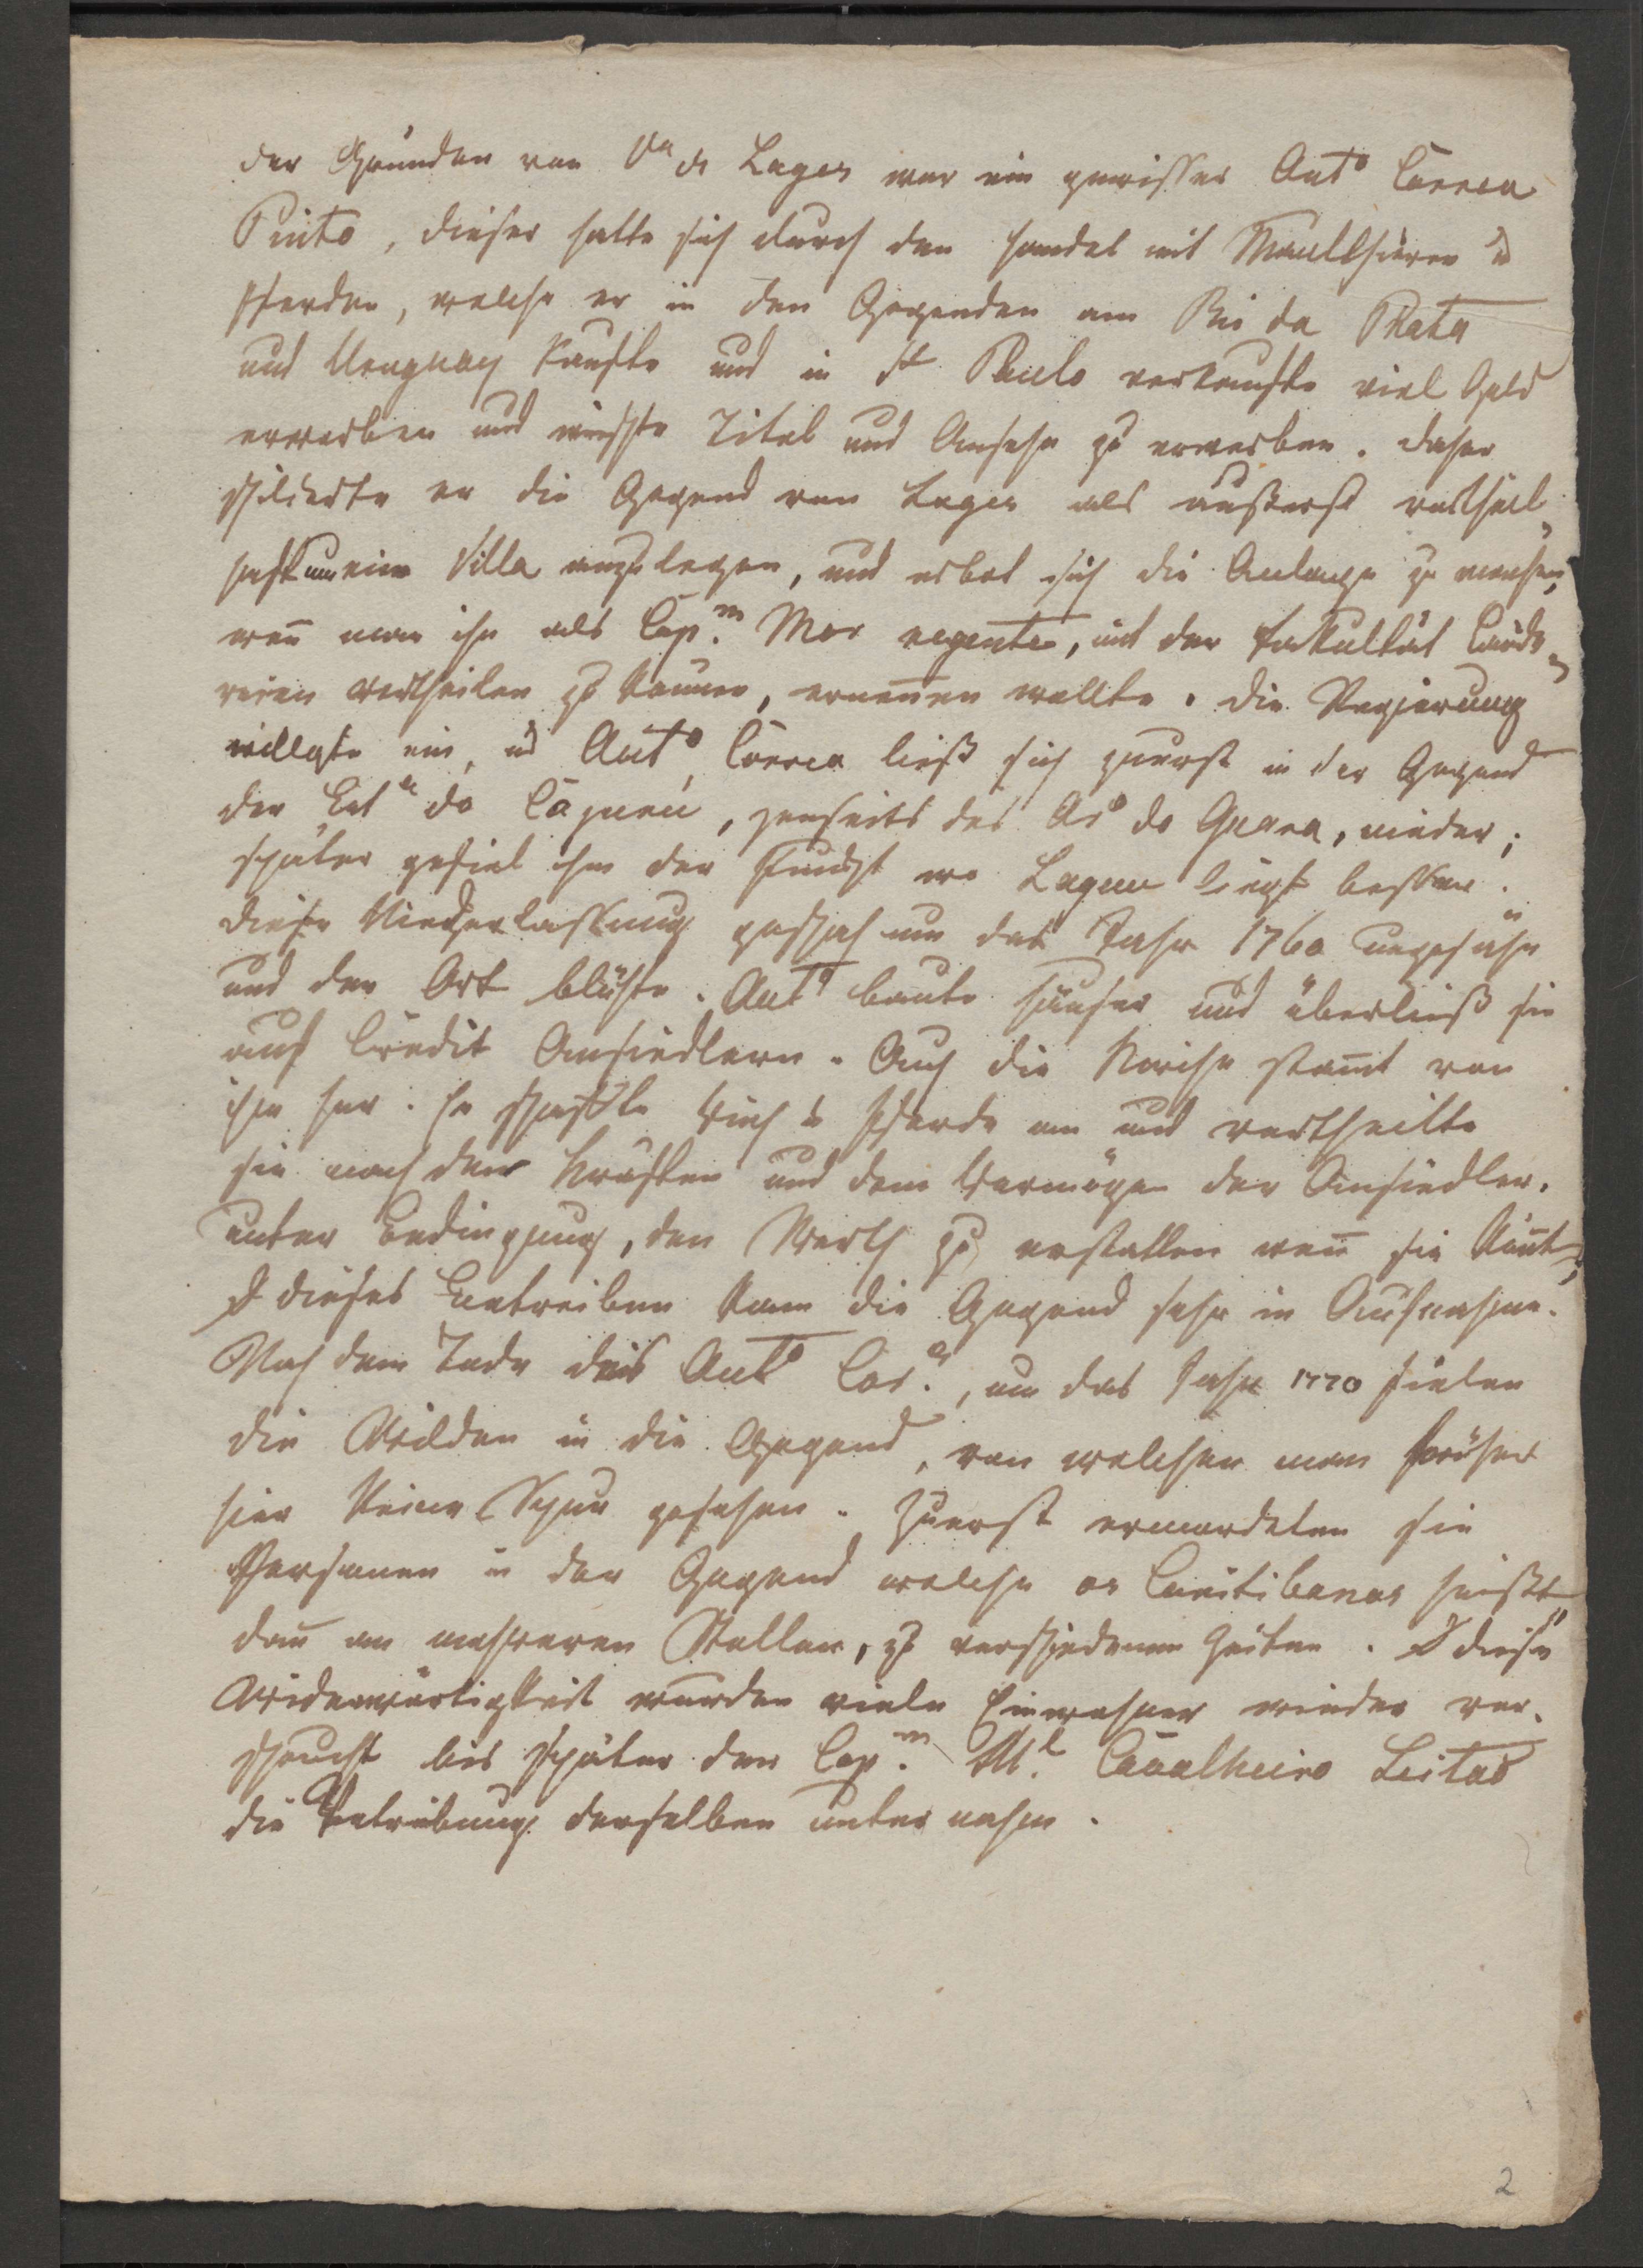 der Gründer von Va de Lages war ein gewisser Anto Correa
Pinto, dieser hatte sich durch den Handel mit Maulthieren u
Pferden, welche er in den Gegenden am Rio da Prata
und Uruguay kaufte und in St Paulo verkaufte viel Geld
erworben und wußte Titel und Ansehn zu erwerben. daher
schilderte er die Gegend von Lages als äußerst vortheil-
haft um eine Villa anzulegen, und erbot sich die Anlage zu machen,
wen̄ man ihn als Cap.m Mor regente, mit der Fakultät Lände-
reien vertheilen zu können, ernen̄en wollte. die Regierung
willigte ein, ud Anto Correa ließ sich zuerst in der Gegend
der do , jenseits des do , nieder;
später gefiel ihm der Punkt wo Lagens liegt besser.
diese Niederlassung geschah um das Jahr 1760 ungefähr
und der Ort blühte. Anto baute Häuser und überließ sie
auf Credit Ansiedlern. Auch die Kirche stam̄t von
ihm her. Er schaffte Vieh u Pferde an und vertheilte
sie nach den Kräften und dem Vermögen der Ansiedler.
unter Bedingung, den Werth zu erstatten wen̄ sie kön̄t-
dieses Betreiben kam die Gegend sehr in Aufnahme.
Nach dem Tode des Anto Cor.a, um das Jahr 1770 fielen
die Wilden in die Gegend, von welchen man früher
hier keine Spur gesehen. Zuerst ermordeten sie
Personen in der Gegend welche os Curitibanos heißt
dan̄ an mehreren Stellen, zu verschiedenen Zeiten. diese
Widerwärtigkeit wurden viele Einwohner wieder ver-
scheucht bis später der Cap.m M.l Cavalheiro Leitaõ
die Vertreibung derselben unternahm.
2